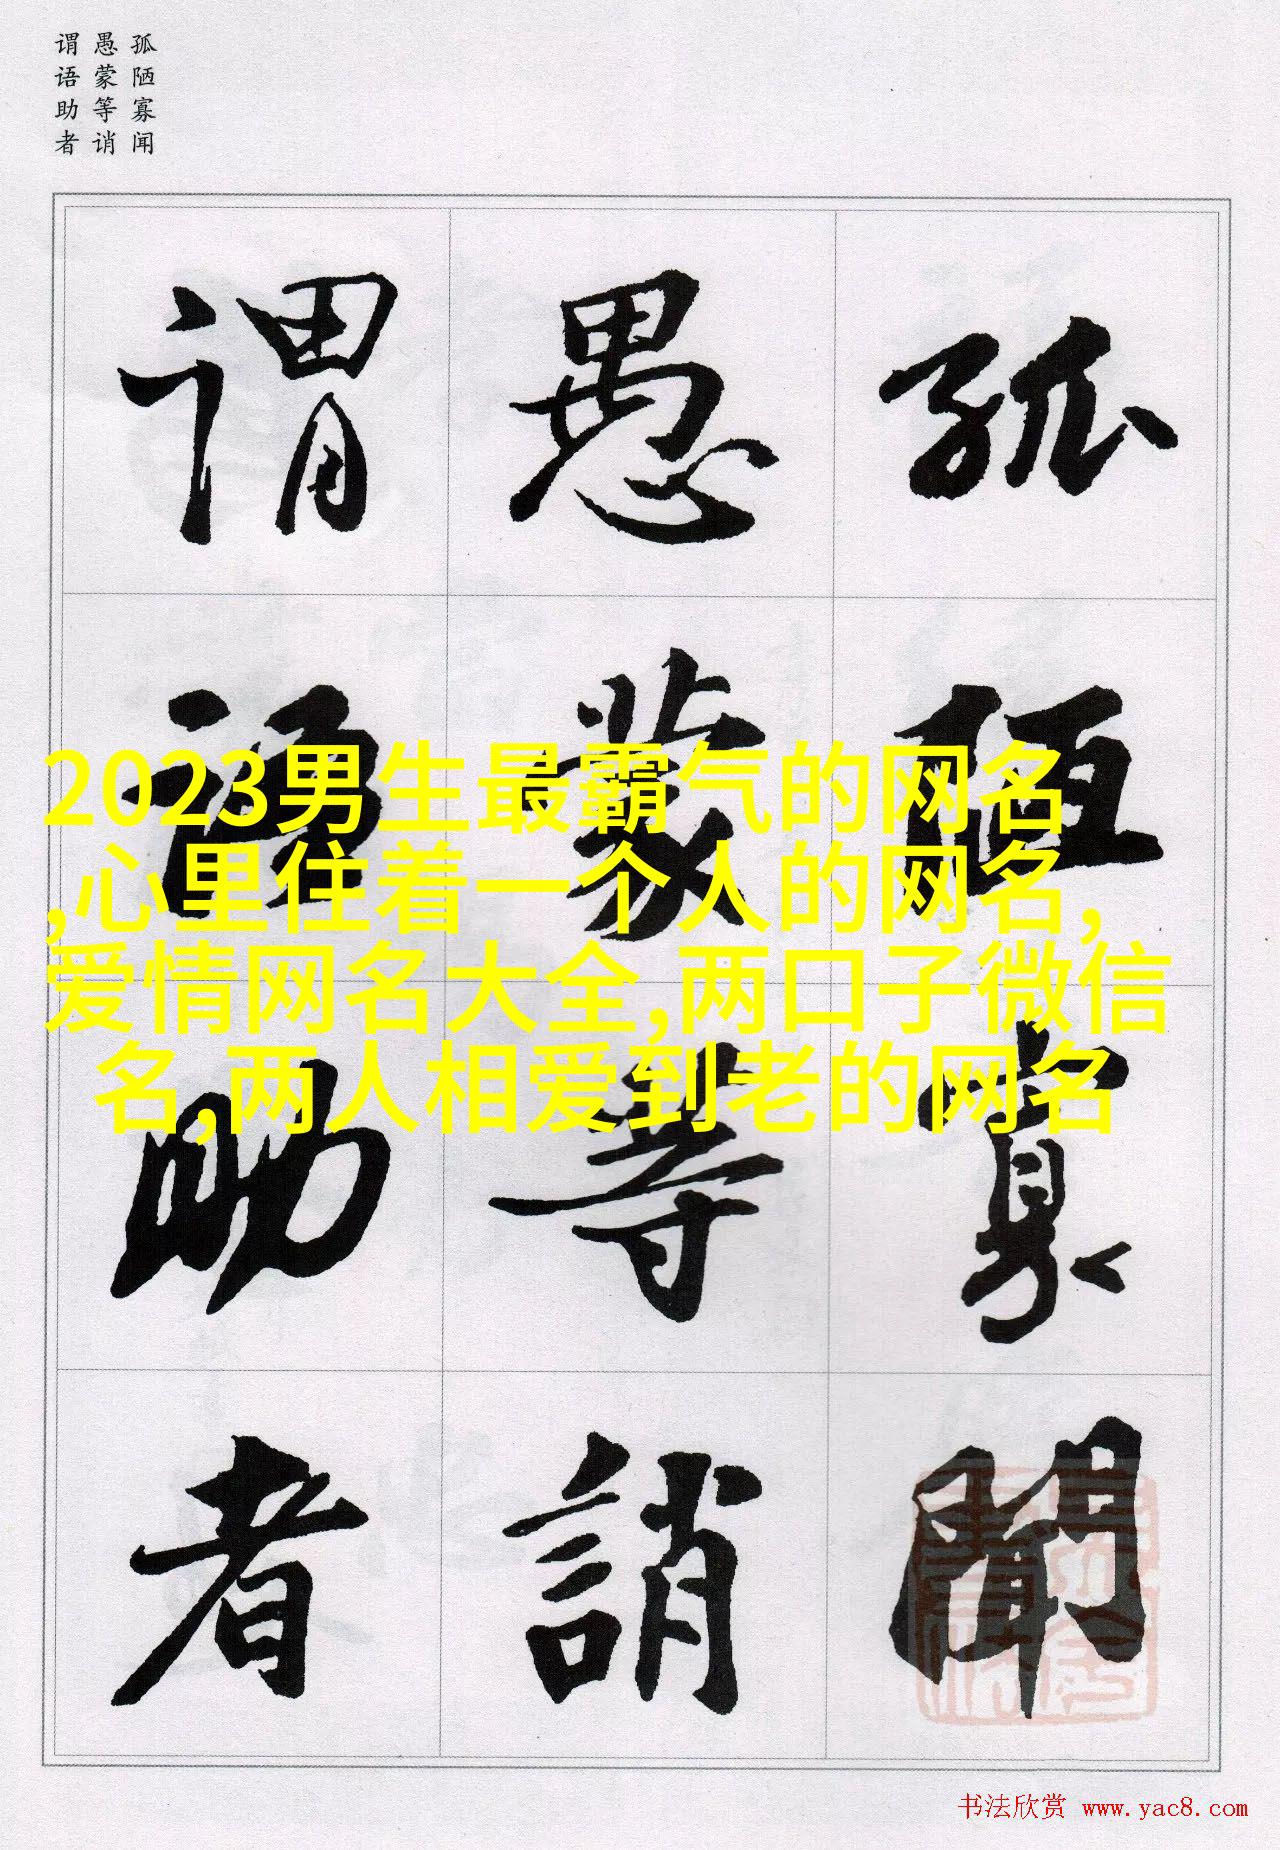 孤陋寡闻
愚蒙等诮
谓语助者
孤陋寡聞
愚蒙等誚
谓語助者
2023男生最霸气的网名
,心里住着一个人的网名,
爱情网名大全,两口子微信
名,两人相爱到老的网名
书法欣赏 www.yac8.com